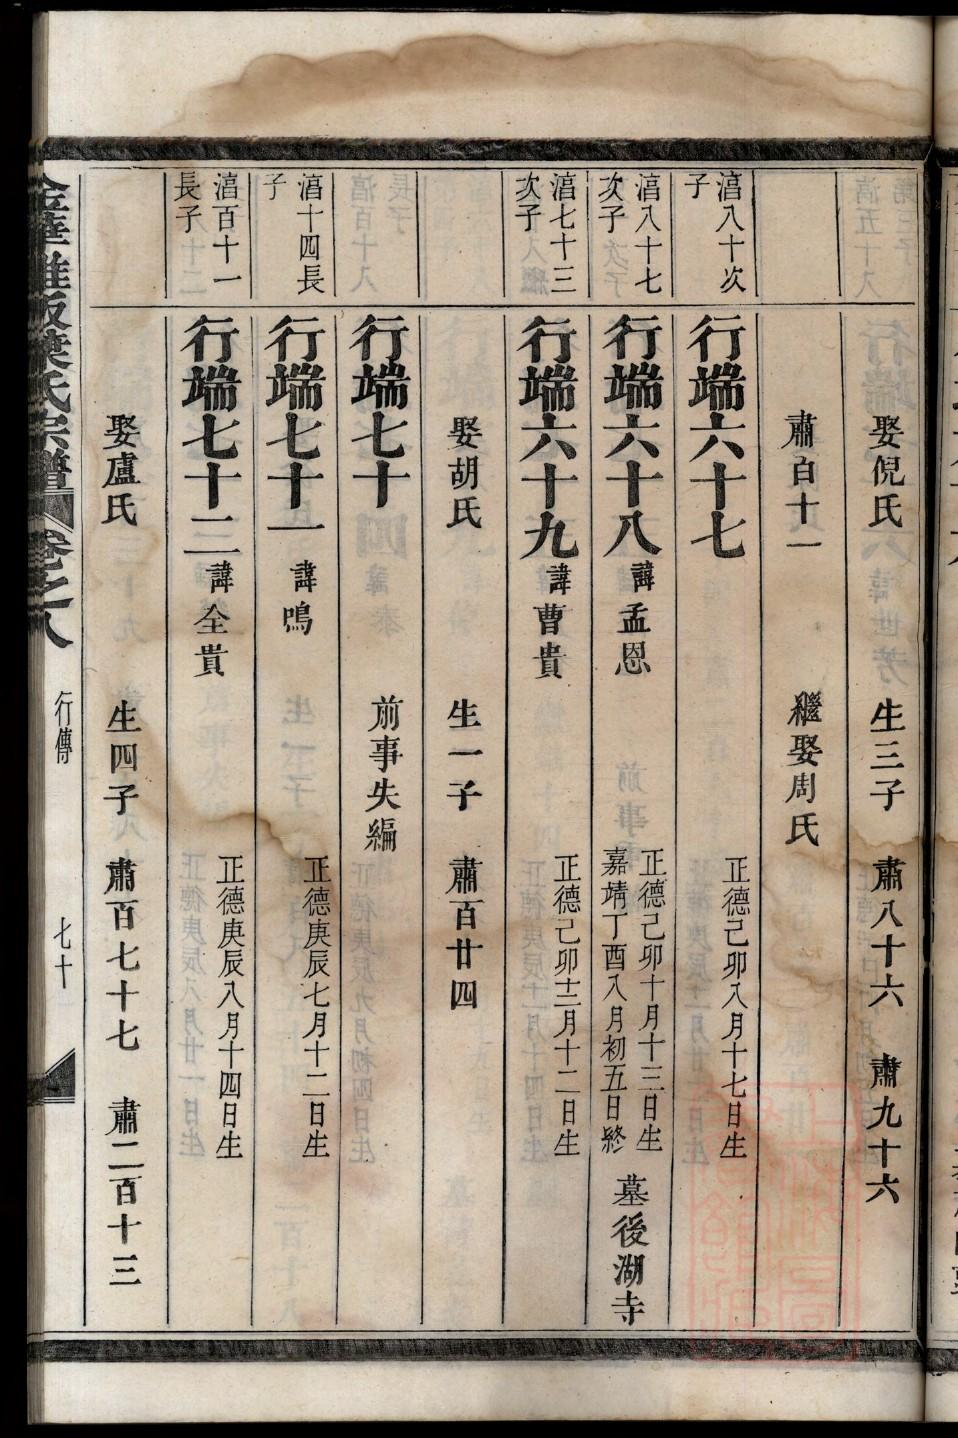 娶倪氏 生三子 肅八十六 肅九十六
肅百十一 繼娶周氏
湻八十次子
行端六十七 正德己卯八月十七日生
湻八十七次子
行端六十八 諱孟恩 正德己卯十月十三日生 嘉靖丁酉八月初五日終 墓後湖寺
湻七十三次子
行端六十九 諱曹貴 正德己卯十二月十二日生
娶胡氏 生一子 肅百廿四
行端七十 前事失編
湻十四長子
行端七十一 諱鳴 正德庚辰七月十二日生
湻百十一長子
行端七十二 諱全貴 正德庚辰八月十四日生
娶盧氏 生四子 肅百七十七 肅二百十三
氏宗譜 卷之八 行傳 七十